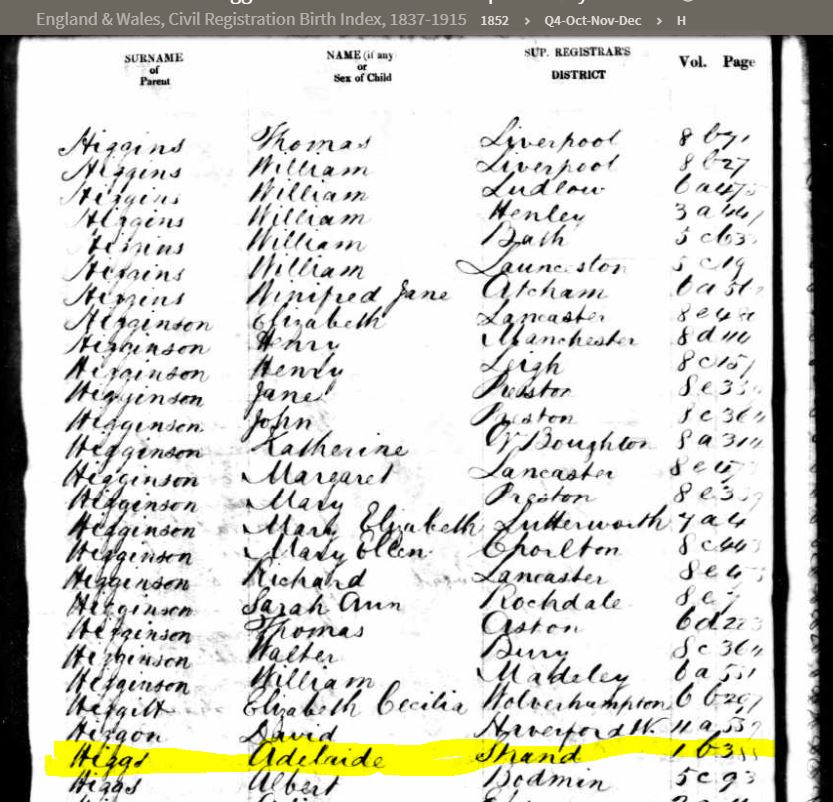 England & Wales, Civil Registration Birth Index, 1837-1915 1852 > Q4-Oct-Nov-Dec > H
SURNAME of Parent NAME (if any or Sex of Child SUP. REGISTRAR'S DISTRICT Vol. Page
Higgins Thomas Liverpool 8 b
Higgins William Liverpool 8 b 27
Higgins William Ludlow 6 a
Higgins William Henley 3 a
Higgins William Bath 5 c
Higgins William Launceston 5 c 19
Higgins Winifred Jane Atcham 6 a
Higginson Elizabeth Lancaster 8 e
Higginson Henry Manchester 8 d
Higginson Henry Leigh 8 c
Higginson Jane Preston 8 e
Higginson John Preston 8
Higginson Katherine Gt Boughton 8 a
Higginson Margaret Lancaster 8 e
Higginson Mary Preston 8 e
Higginson Mary Elizabeth Lutterworth 7 a 4
Higginson Mary Ellen Chorlton 8 c
Higginson Richard Lancaster 8 e
Higginson Sarah Ann Rochdale 8 e
Higginson Thomas Aston 6 d
Higginson Walter Bury 8 c
Higginson William Madeley 6 a
Higgitt Elizabeth Cecilia Wolverhampton 6 b
Higgon David Haverford W. 11 a
Higgs Adelaide Strand 1 b
Higgs Albert Bodmin 5 c 93